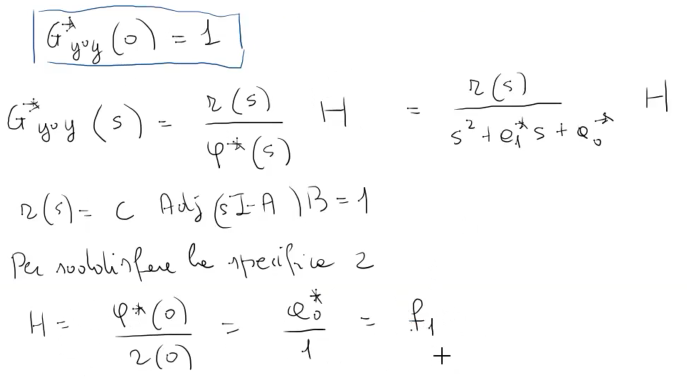 G*y⁰y (0) = 1
G*y⁰y (s) = r(s) / φ*(s) H = r(s) / (s² + a₁* s + a₀*) H
r(s) = C Adj (sI-A) B = 1
Per soddisfare la specifica 2
H = φ*(0) / r(0) = a₀* / 1 = f₁